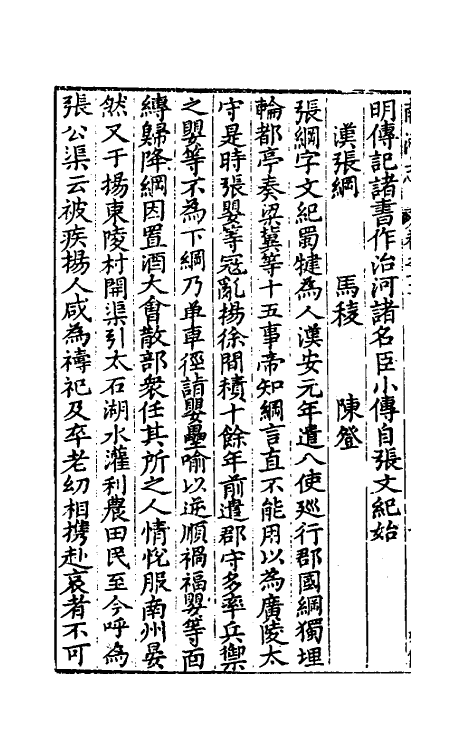 明傳記諸書作治河諸名臣小傳自張文紀始
漢張綱　馬稜　陳登
張綱字文紀蜀犍為人漢安元年遣八使廵行郡國綱獨埋
輪都亭奏梁冀等十五事帝知綱言直不能用以為廣陵太
守是時張嬰等冦亂揚徐間積十餘年前遣郡守多率兵禦
之嬰等不為下綱乃单車徑詣嬰壘喻以逆順禍福嬰等面
縳歸降綱因置酒大會散部衆任其所之人情悅服南州晏
然又于揚東陵村開渠引太石湖水灌利農田民至今呼為
張公渠云被疾揚人咸為禱祀及卒老幼相携赴哀者不可